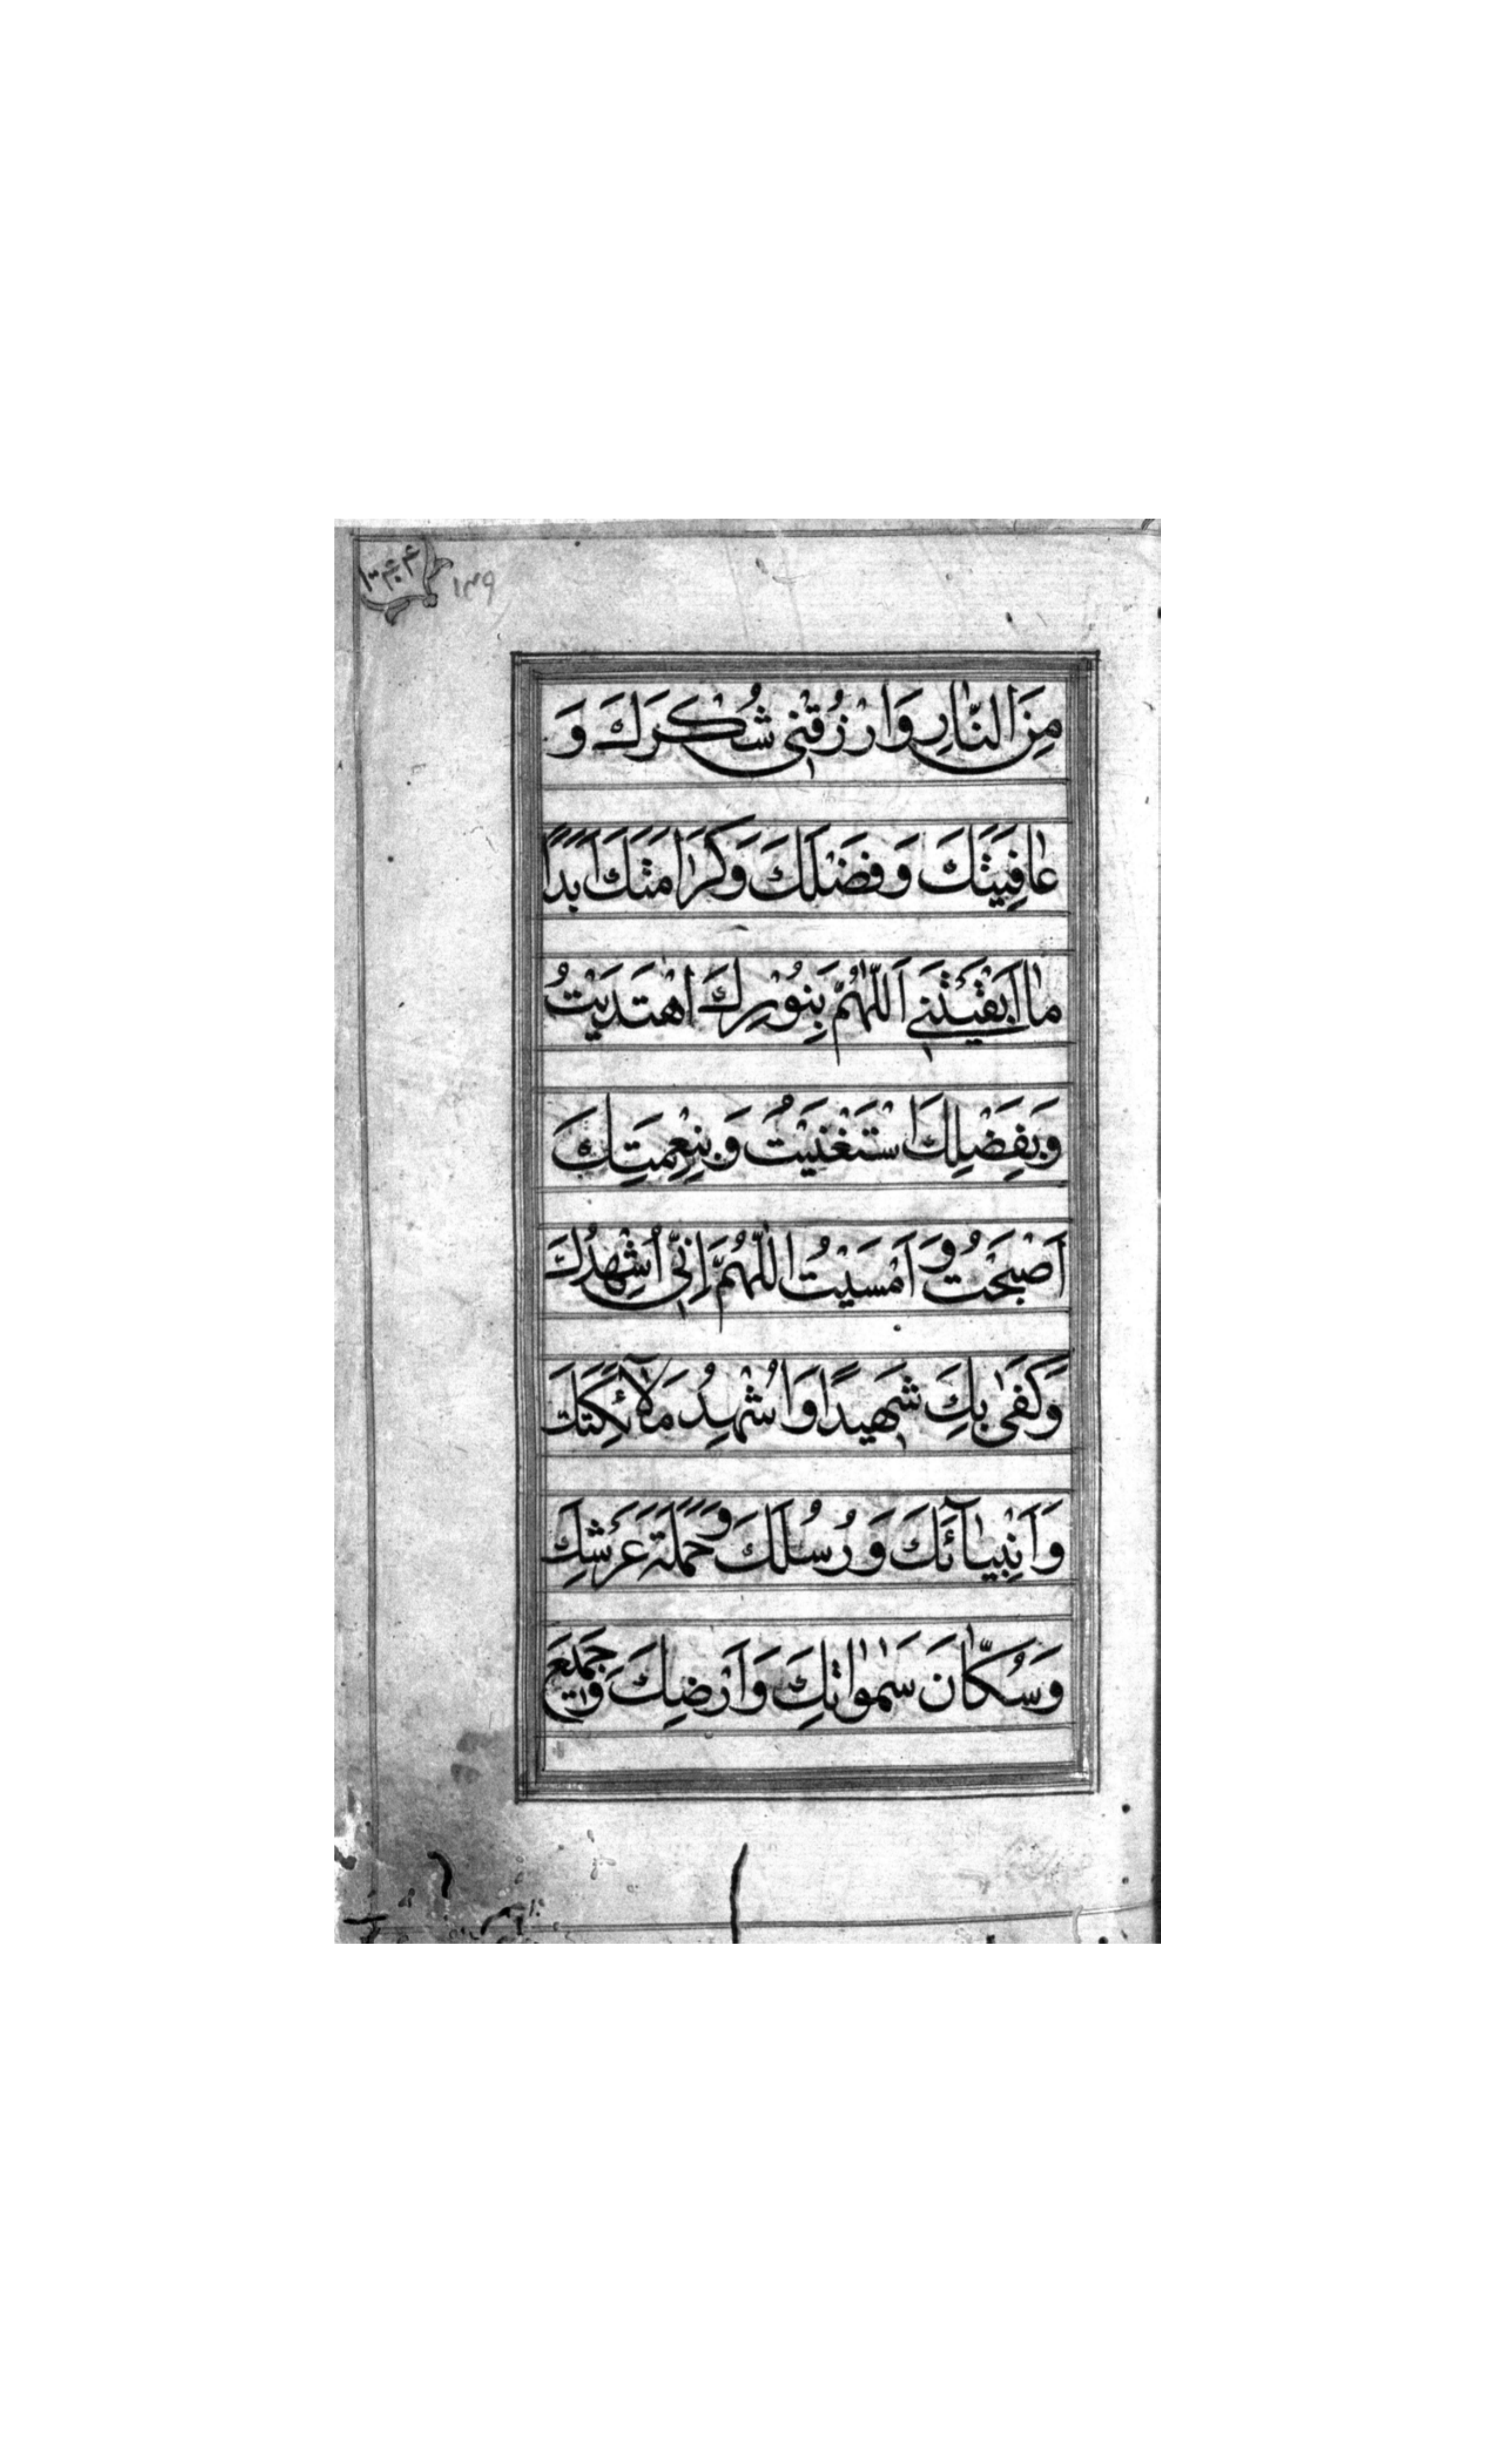 ١٣٩
مِنَ النّٰارِ وَارْزُقْنٖى شُكْرَكَ وَ
عٰافِيَتَكَ وَفَضْلَكَ وَكَرٰامَتَكَ اَبَدًا
مٰا اَبْقَيْتَنٖى اَللّٰهُمَّ بِنُوْرِكَ اهْتَدَيْتُ
وَبِفَضْلِكَ اسْتَغْنَيْتُ وَبِنِعْمَتِكَ
اَصْبَحْتُ وَ اَمْسَيْتُ اللّٰهُمَّ اِنّٖى اُشْهِدُكَ
وَكَفٰى بِكَ شَهٖيدًا وَاُشْهِدُ مَلٰٓائِكَتَكَ
وَاَنْبِيٰٓائَكَ وَرُسُلَكَ وَحَمَلَةَ عَرْشِكَ
وَسُكّٰانَ سَمٰوٰاتِكَ وَاَرْضِكَ وَجَمٖيعَ